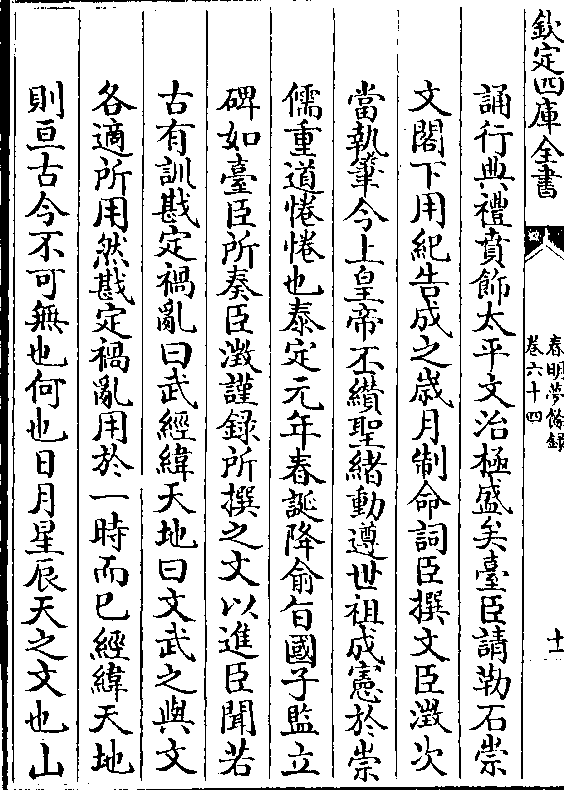 欽定四庫全書
春明夢餘録
卷六十四
十一
誦行典禮賁飾太平文治極盛矣臺臣請勒石崇
文閣下用紀告成之歲月制命詞臣撰文臣澂次
當執筆今上皇帝丕纘聖緒動遵世祖成憲於崇
儒重道惓惓也泰定元年春誕降俞旨國子監立
碑如臺臣所奏臣澂謹録所撰之文以進臣聞若
古有訓戡定禍亂曰武經緯天地曰文武之與文
各適所用然戡定禍亂用於一時而已經緯天地
則亘古今不可無也何也日月星辰天之文也山